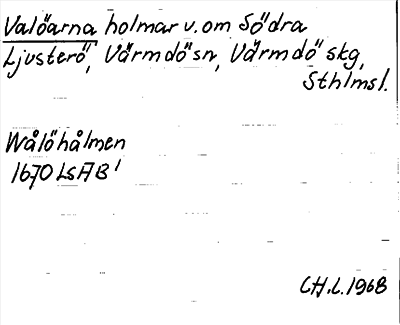 Valöarna holmar v. om Södra
Ljusterö, Värmdö sn, Värmdö skg,
Sthlms l.
Wålöhålmen
1670 LSAB 1
CH.L. 1968